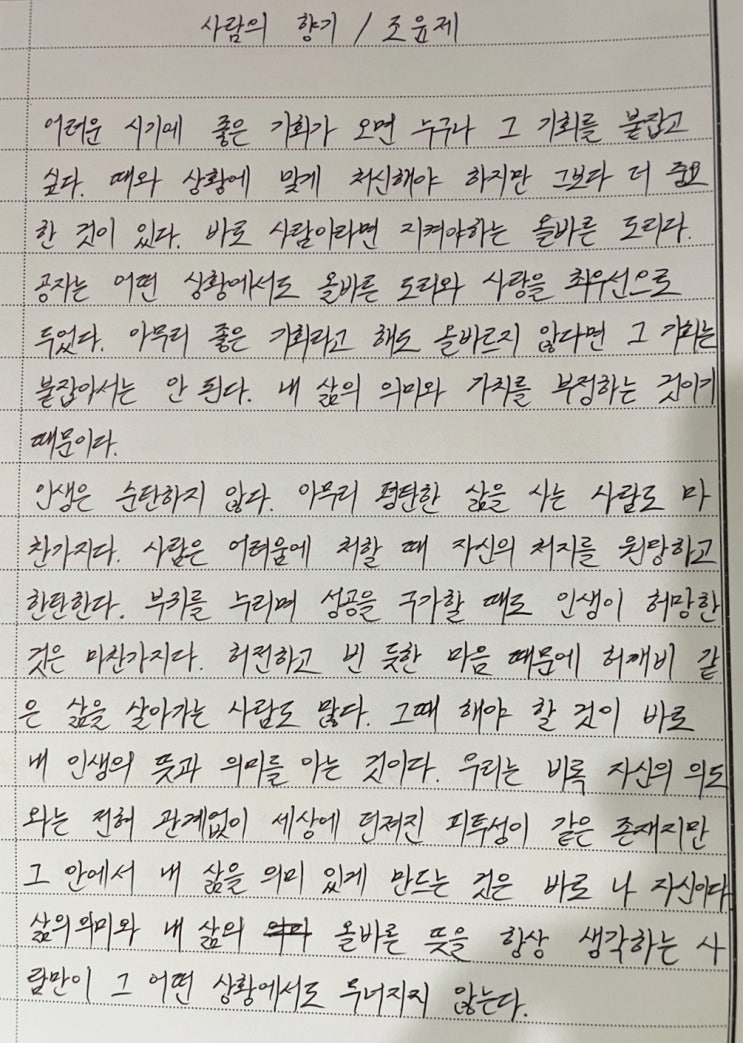 사람의 향기 / 조윤제
어려운 시기에 좋은 기회가 오면 누구나 그 기회를 붙잡고
싶다. 때와 상황에 맞게 처신해야 하지만 그보다 더 중요
한 것이 있다. 바로 사람이라면 지켜야하는 올바른 도리다.
공자는 어떤 상황에서도 올바른 도리와 사랑을 최우선으로
두었다. 아무리 좋은 기회라고 해도 올바르지 않다면 그 기회는
붙잡아서는 안 된다. 내 삶의 의미와 가치를 부정하는 것이기
때문이다.
인생은 순탄하지 않다. 아무리 평탄한 삶을 사는 사람도 마
찬가지다. 사람은 어려움에 처할 때 자신의 처지를 원망하고
한탄한다. 부귀를 누리며 성공을 구가할 때도 인생이 허망한
것은 마찬가지다. 허전하고 빈 듯한 마음 때문에 허깨비 같
은 삶을 살아가는 사람도 많다. 그때 해야 할 것이 바로
내 인생의 뜻과 의미를 아는 것이다. 우리는 비록 자신의 의도
와는 전혀 관계없이 세상에 던져진 피투성이 같은 존재지만
그 안에서 내 삶을 의미 있게 만드는 것은 바로 나 자신이다
삶의 의미와 내 삶의 올바른 뜻을 항상 생각하는 사
람만이 그 어떤 상황에서도 무너지지 않는다.